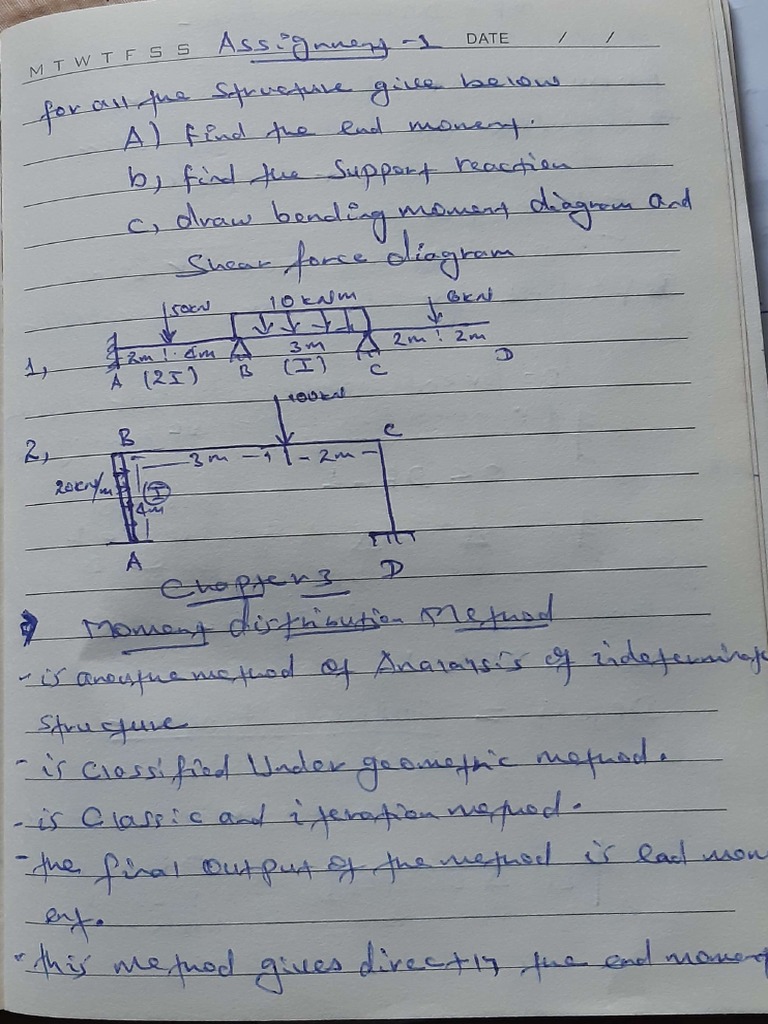 M T W T F S S Assignment -1 DATE / /
for all the Structure give below
A) find the end moment.
b, find the Support reaction
c, draw bending moment diagram and
Shear force diagram
50kN 10 kNm 6kN
1, 2m 4m 3m 2m 2m
A (2I) B (I) C D
100kN
2, B C
3m 2m
20kN/m I
4m
A D
Chapter 3
Moment distribution Method
- is method of Analysis of indeterminate
Structure
- is classified Under geometric method.
- is Classic and iteration method.
- the final output of the method is ead mom
ent.
- this method gives directly the end moment